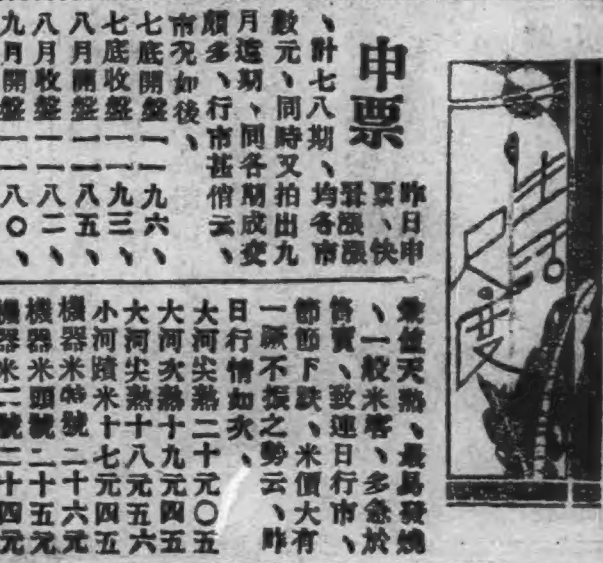 生活尺度
申票
昨日申
票、快
晉漲漲
、計七八期、均各市
數元、同時又拍出九
月遠期、同各期成交
頗多、行市甚俏云、
市况如後、
七底開盤一一九六、
七底收盤一一九三、
八月開盤一一八五、
八月收盤一一八二、
九月開盤一一八〇、
值天熱、最易發燒
、一般米客、多急於
售賣、致連日行市、
節節下跌、米價大有
一蹶不振之勢云、昨
日行情如次、
大河尖熱二十元〇五
大河次熱十九元四五
大河尖熱十八元五六
小河蹟米十七元四五
機器米特號二十六元
機器米頭號二十五元
機器米二號二十四元